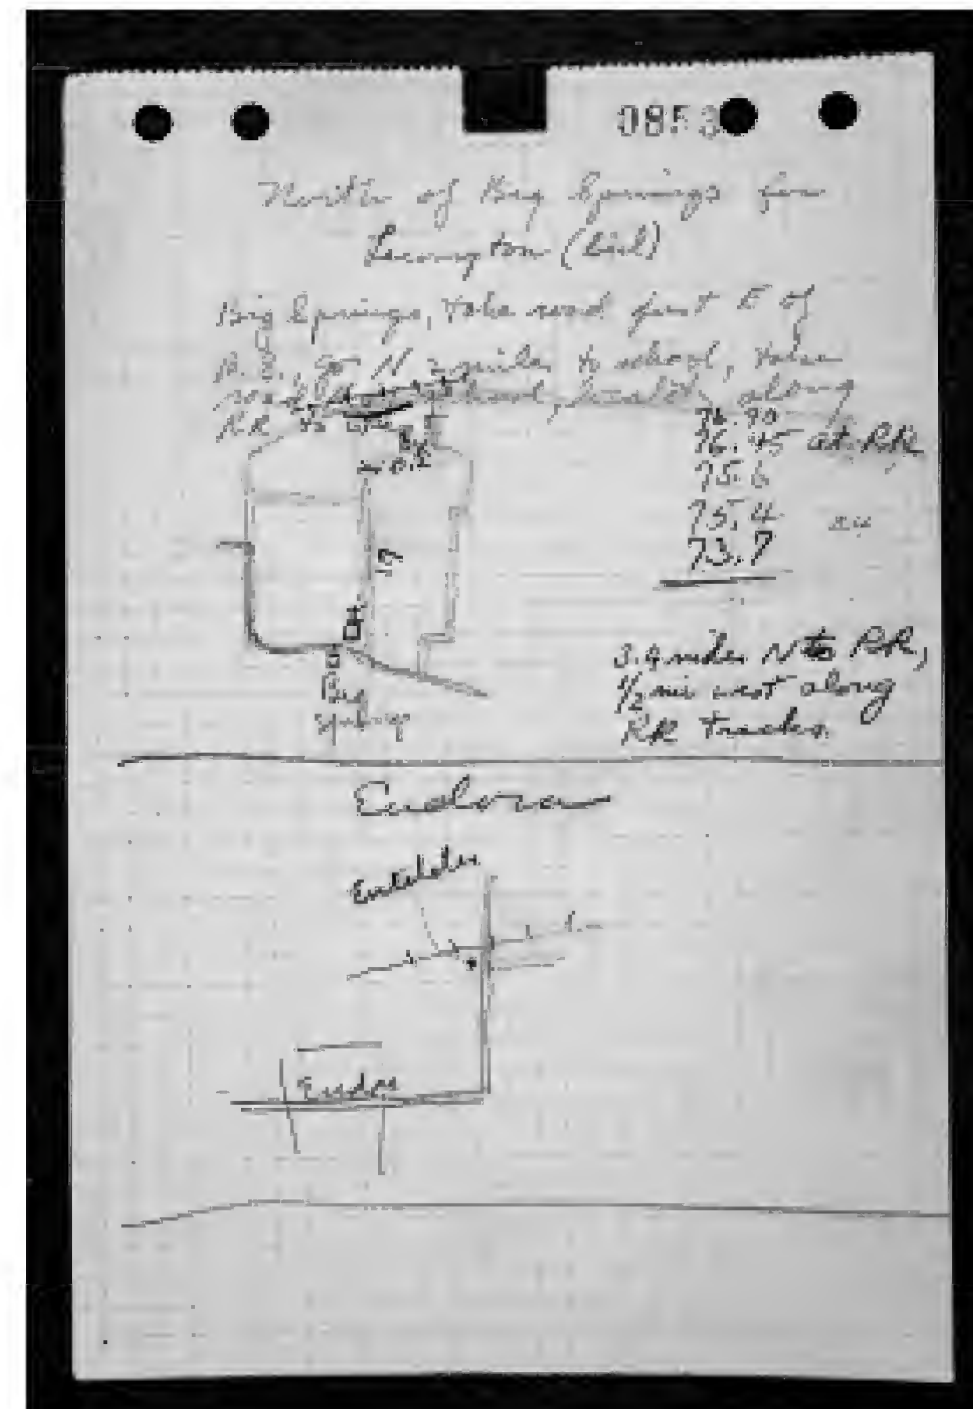 0853
North of Big Springs for
Lecompton (bed)
Big Springs, take road first E of
go 2 miles to school, take
road school, along
RR
76.90
76.45 at RR
75.6
75.4
73.7
17
Big
Springs
3.4 miles N to RR,
1/2 mi west along
RR tracks.
Eudora
Enteletes
Eudora